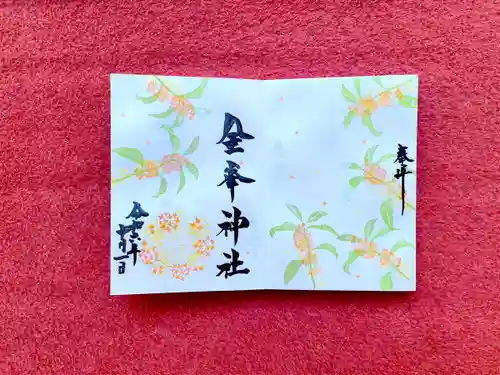 奉拝
金峯神社
令和六年
十月一日